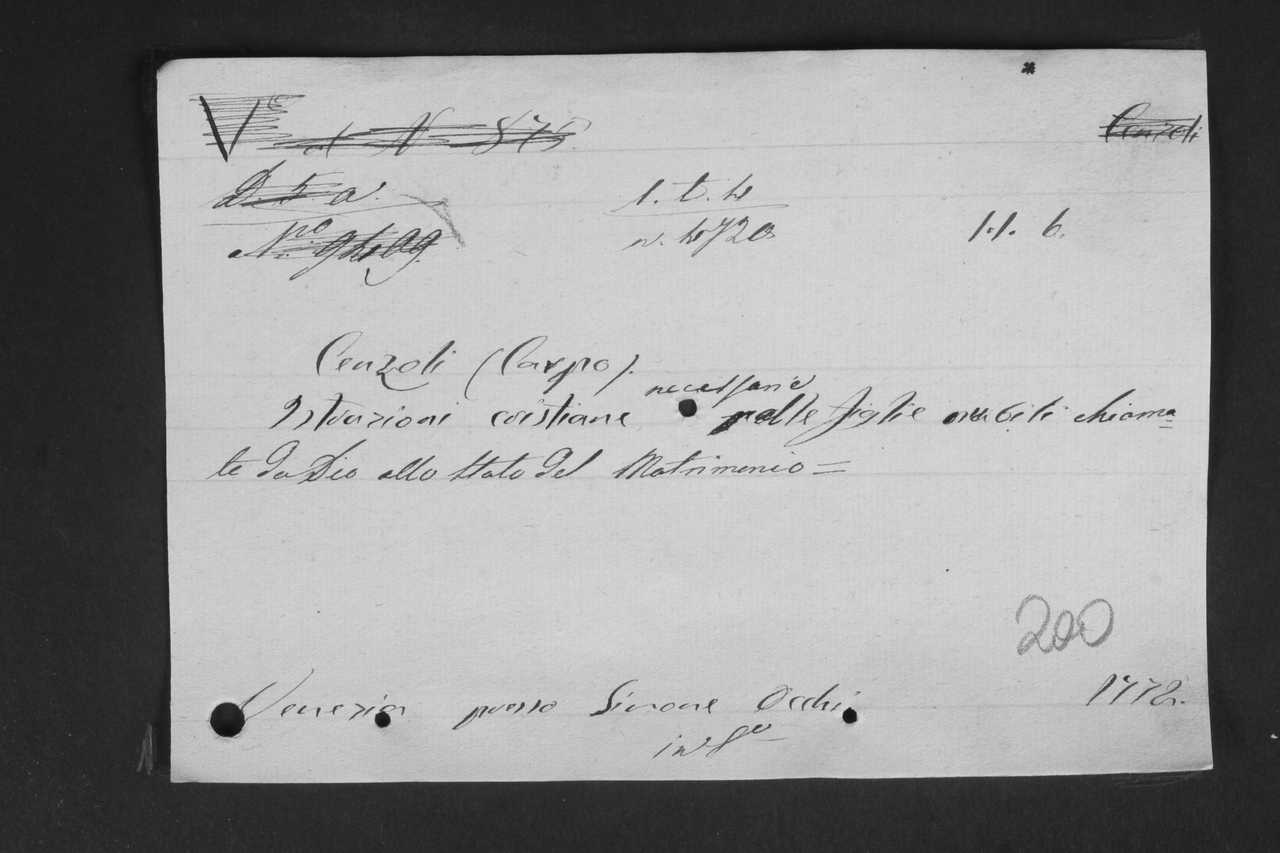 V^e al N 876 Cenzoli
D. 5 a. 1. t. 4
N.ro 9499. n. 4720 1.1. 6.
Cenzoli (Carpo).
necessarie
Istruzioni cristiane alle figlie nubili chiama=
te da Dio allo stato del Matrimonio=
200
Venezia presso Simone Occhi 1772.
in 8º